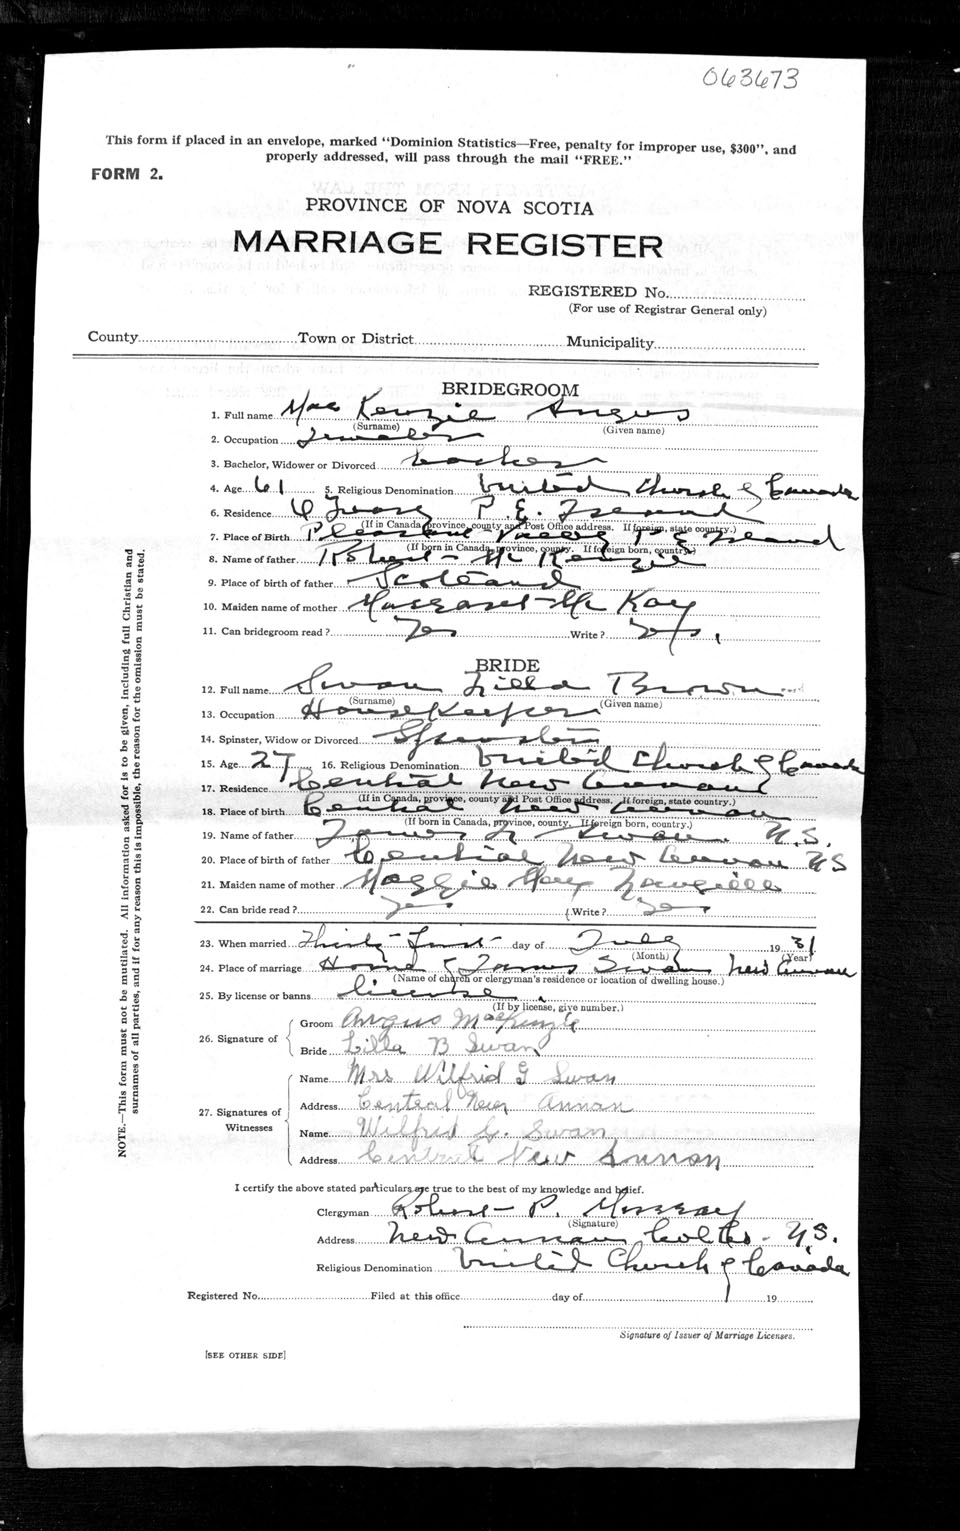 063673
This form if placed in an envelope, marked "Dominion Statistics—Free, penalty for improper use, $300", and
properly addressed, will pass through the mail "FREE."
FORM 2.
PROVINCE OF NOVA SCOTIA
MARRIAGE REGISTER
REGISTERED No.
(For use of Registrar General only)
County Town or District Municipality
BRIDEGROOM
1. Full name Mac Kenzie Angus
(Surname) (Given name)
2. Occupation Jeweler
3. Bachelor, Widower or Divorced
4. Age 61 5. Religious Denomination United Church of Canada
6. Residence P. E. Island
(If in Canada, province, county and Post Office address. If foreign, state country.)
7. Place of Birth Pleasant Valley P E Island
(If born in Canada, province, county. If foreign born, country.)
8. Name of father Robert McKenzie
9. Place of birth of father Scotland
10. Maiden name of mother Margaret Mc Kay
11. Can bridegroom read? Yes Write? Yes
BRIDE
12. Full name Swan Lilla Brown
(Surname) (Given name)
13. Occupation Housekeeper
14. Spinster, Widow or Divorced Spinster
15. Age 27 16. Religious Denomination United Church of Canada
17. Residence Central New Annan
(If in Canada, province, county and Post Office address. If foreign, state country.)
18. Place of birth Central New Annan
(If born in Canada, province, county. If foreign born, country.)
19. Name of father James Swan N.S.
20. Place of birth of father Central New Annan NS
21. Maiden name of mother Maggie May
22. Can bride read? yes Write? yes
23. When married Thirty-first day of July 1931
(Month) (Year)
24. Place of marriage Home of James Swan New Annan
(Name of church or clergyman's residence or location of dwelling house.)
25. By license or banns license
(If by license, give number.)
26. Signature of
Groom Angus MacKenzie
Bride Lilla B Swan
27. Signatures of Witnesses
Name Mrs Wilfrid G Swan
Address Central New Annan
Name Wilfrid G. Swan
Address Central New Annan
I certify the above stated particulars are true to the best of my knowledge and belief.
Clergyman Robert P. Murray
(Signature)
Address New Annan Col. Co. N.S.
Religious Denomination United Church of Canada
Registered No. Filed at this office day of 19
Signature of Issuer of Marriage Licenses.
[SEE OTHER SIDE]
NOTE.—This form must not be mutilated. All information asked for is to be given, including full Christian and
surnames of all parties, and if for any reason this is impossible, the reason for the omission must be stated.